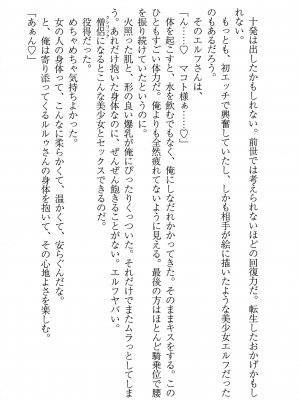 十発は出したかもしれない。前世では考えられないほどの回復力だ。転生したおかげかもし
れない。
もっとも、初エッチで興奮していたし、しかも相手が絵に描いたような美少女エルフだった
のもあるだろう。
そのエルフさんは、
「ん……♡　マコト様ぁ……♡」
体を起こすと、水を飲むでもなく、俺にしなだれかかってきた。そのままキスをする。この
ひともすごい体力だ。俺よりも全然疲れてないように見える。最後の方はほとんど騎乗位で腰
を振り続けていたというのに。
火照った肌と、形の良い爆乳が俺にぴったりくっついた。それだけでまたムラっとしてしま
う。あれだけ抱いた身体なのに、ぜんぜん飽きることがない。エルフヤバい。
僧侶になるとこんな美少女とセックスできるのだ。
役得だった。
めちゃめちゃ気持ちよかった。
女の人の身体って、こんなに柔らかくて、温かくて、安らぐんだな。
と、俺は寄り添ってくるルルゥさんの身体を抱いて、その心地よさを楽しむ。
「あぁん♡」